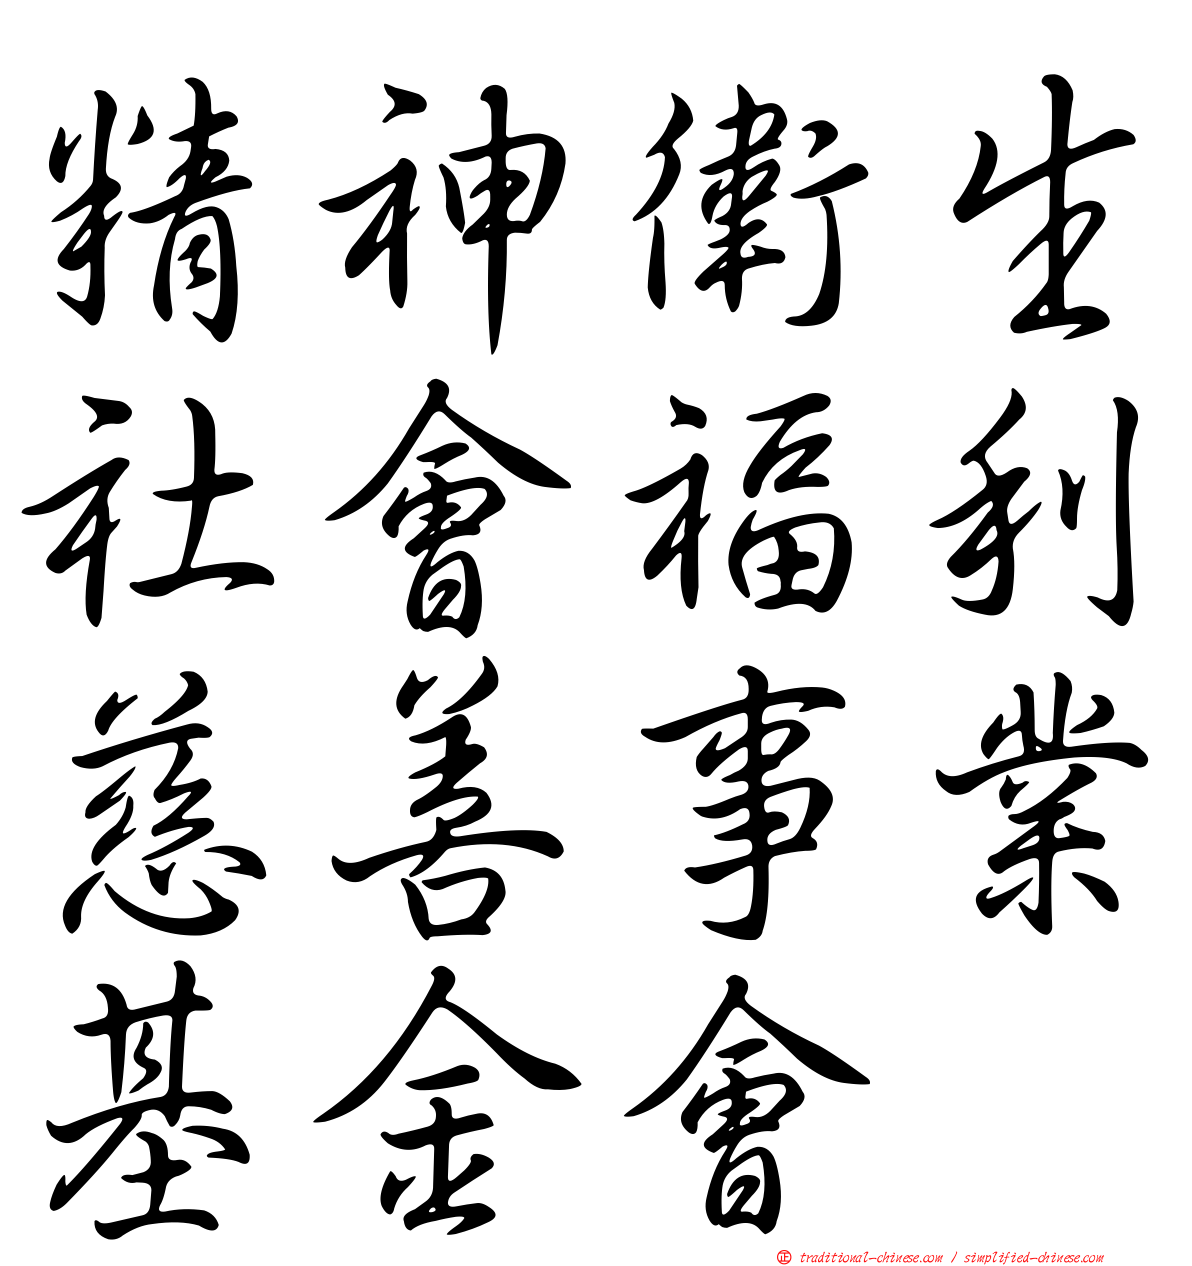 精神衛生
社會福利
慈善事業
基金會
正 traditional-chinese.com / simplified-chinese.com